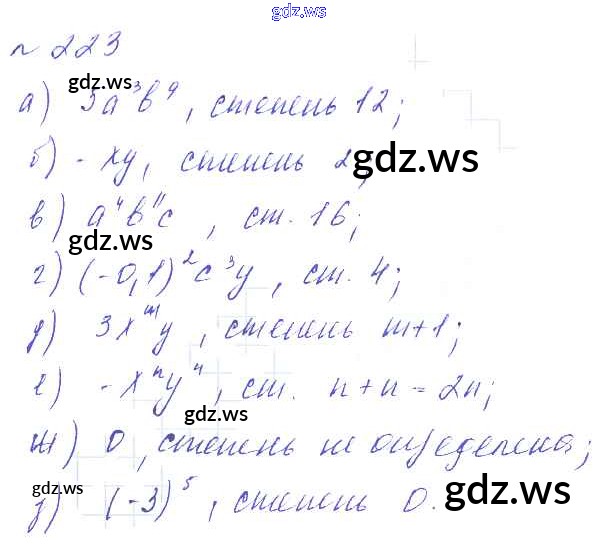 gdz.ws
№ 223
gdz.ws
а) 5a³b⁹, степень 12;
б) -xy, степень 2;
gdz.ws
в) a⁴b¹¹c, ст. 16;
gdz.ws
г) (-0,1)²c³y, ст. 4;
д) 3xᵐy, степень m+1;
е) -xⁿyⁿ, ст. n+n=2n;
gdz.ws
ж) 0, степень не определена;
gdz.ws
gdz.ws
з) (-3)⁵, степень 0.